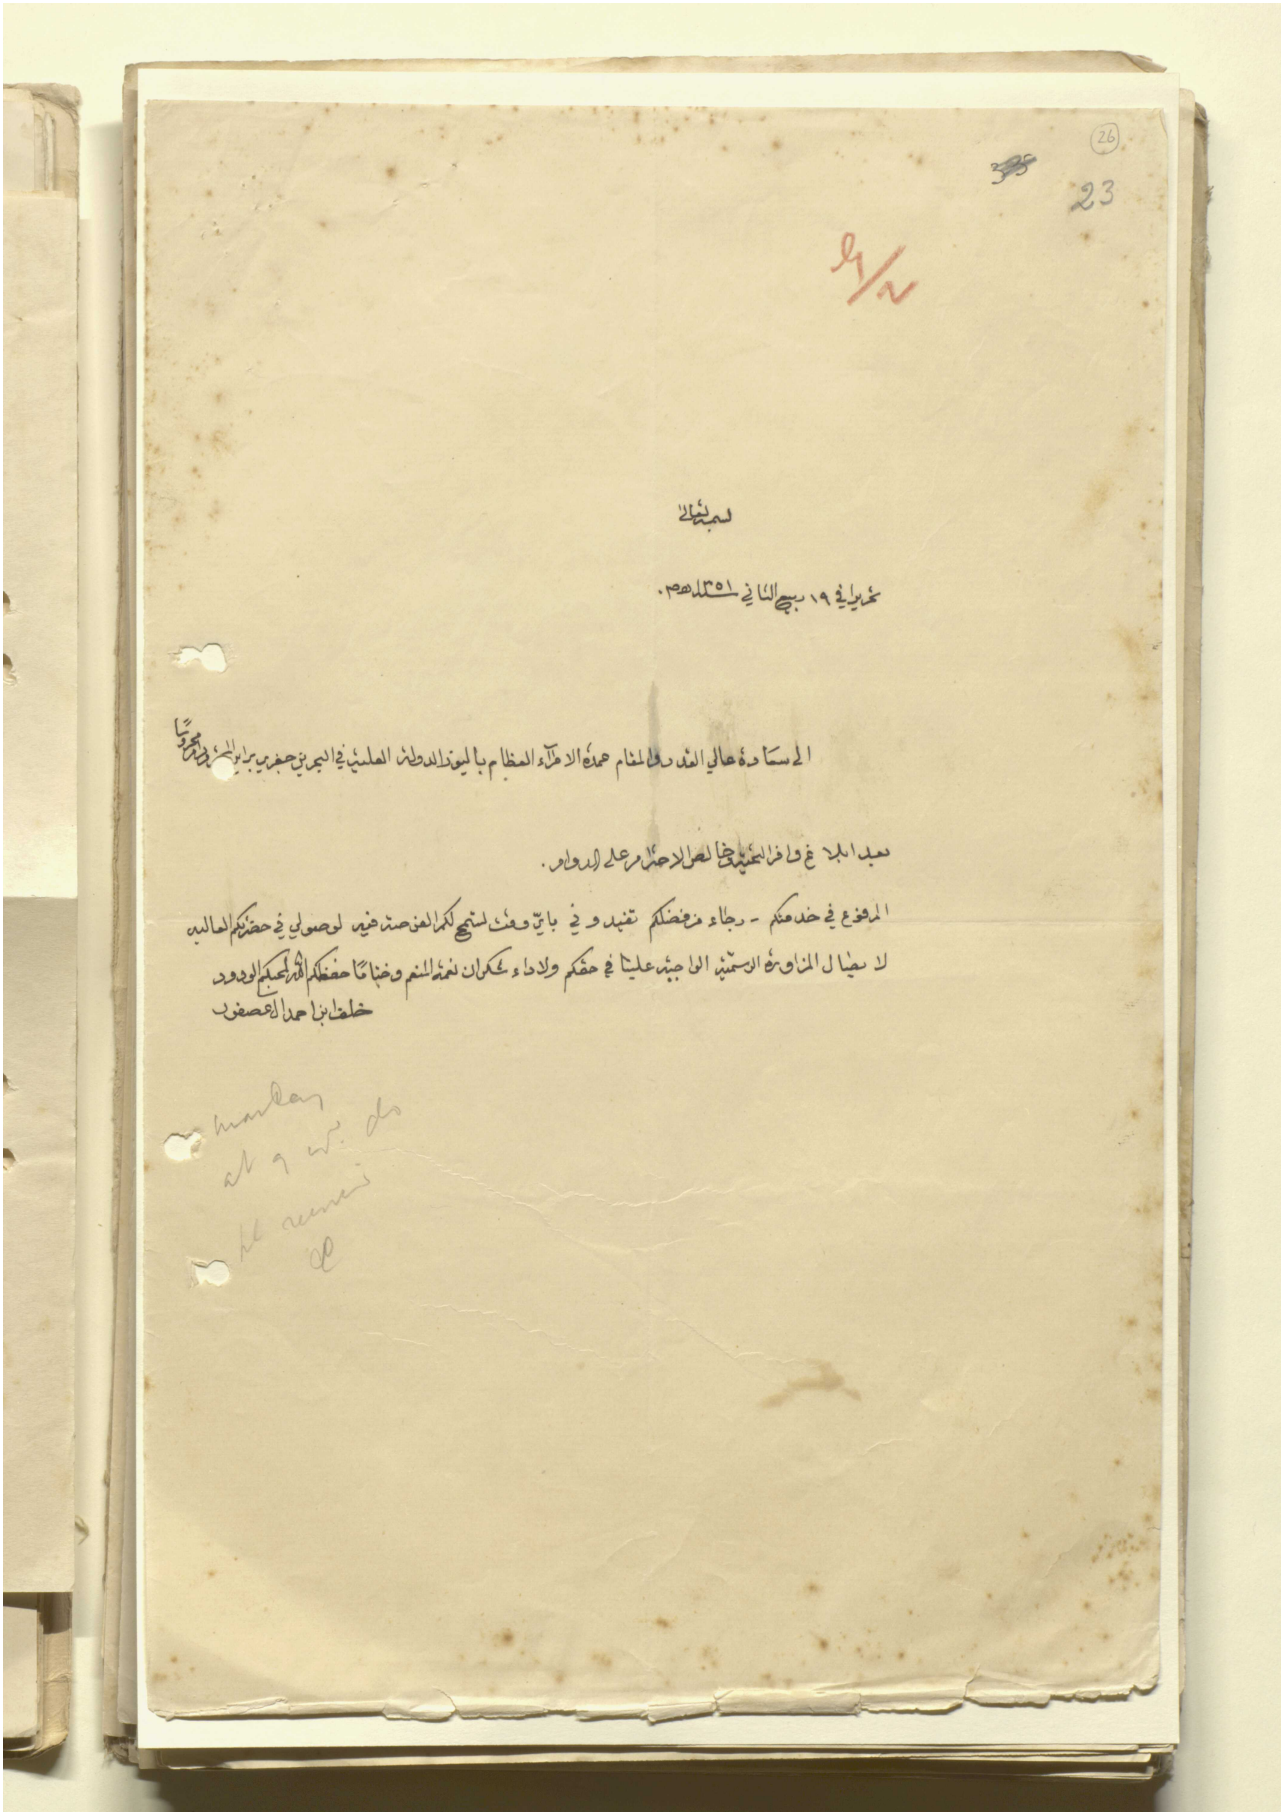 26
23
بسمه تعالى
تحريرا في ١٩ ربيع الثاني سنة ١٣٥١ هـ
الى سعادة عالي القدر والمقام عمدة الامرآء العظام باليوز الدولة العلية في البحرين جفري برايز المحترم محروسًا
بعد ابلاغ وافر التحية وخالص الاحترام على الدوام .
المرفوع في خدمتكم - رجاء من فضلكم تفيدوني بايّ وقت تسمح لكم الفرصة فيه لوصولي في حضرتكم العاليه
لايصال المزاورة الرسمّية الواجبة علينا في حقكم ولاداء شكران نعمة المنعم وختامًا حفظكم الله لمحبكم الودود
خلف ابن احمد ال عصفور
monday
at 9 do